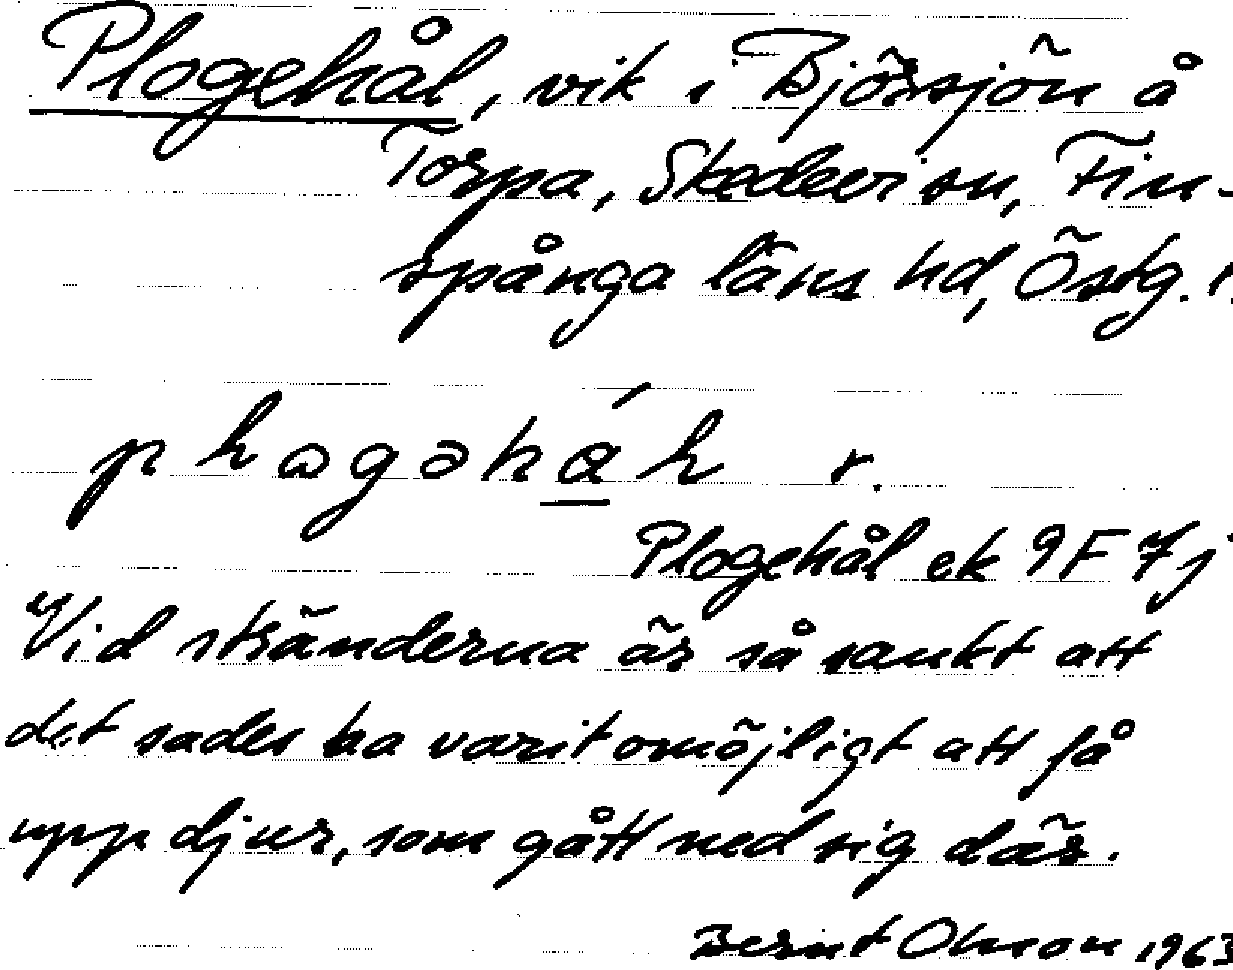 Plogehål, vik i Björsjön å
Torpa, Skedevi sn, Fin-
spånga läns hd, Östg. l.
Plogehål ek 9F 7j
Vid stränderna är så sankt att
det sades ha varit omöjligt att få
upp djur, som gått ned sig där.
Bernt Olsson 1963